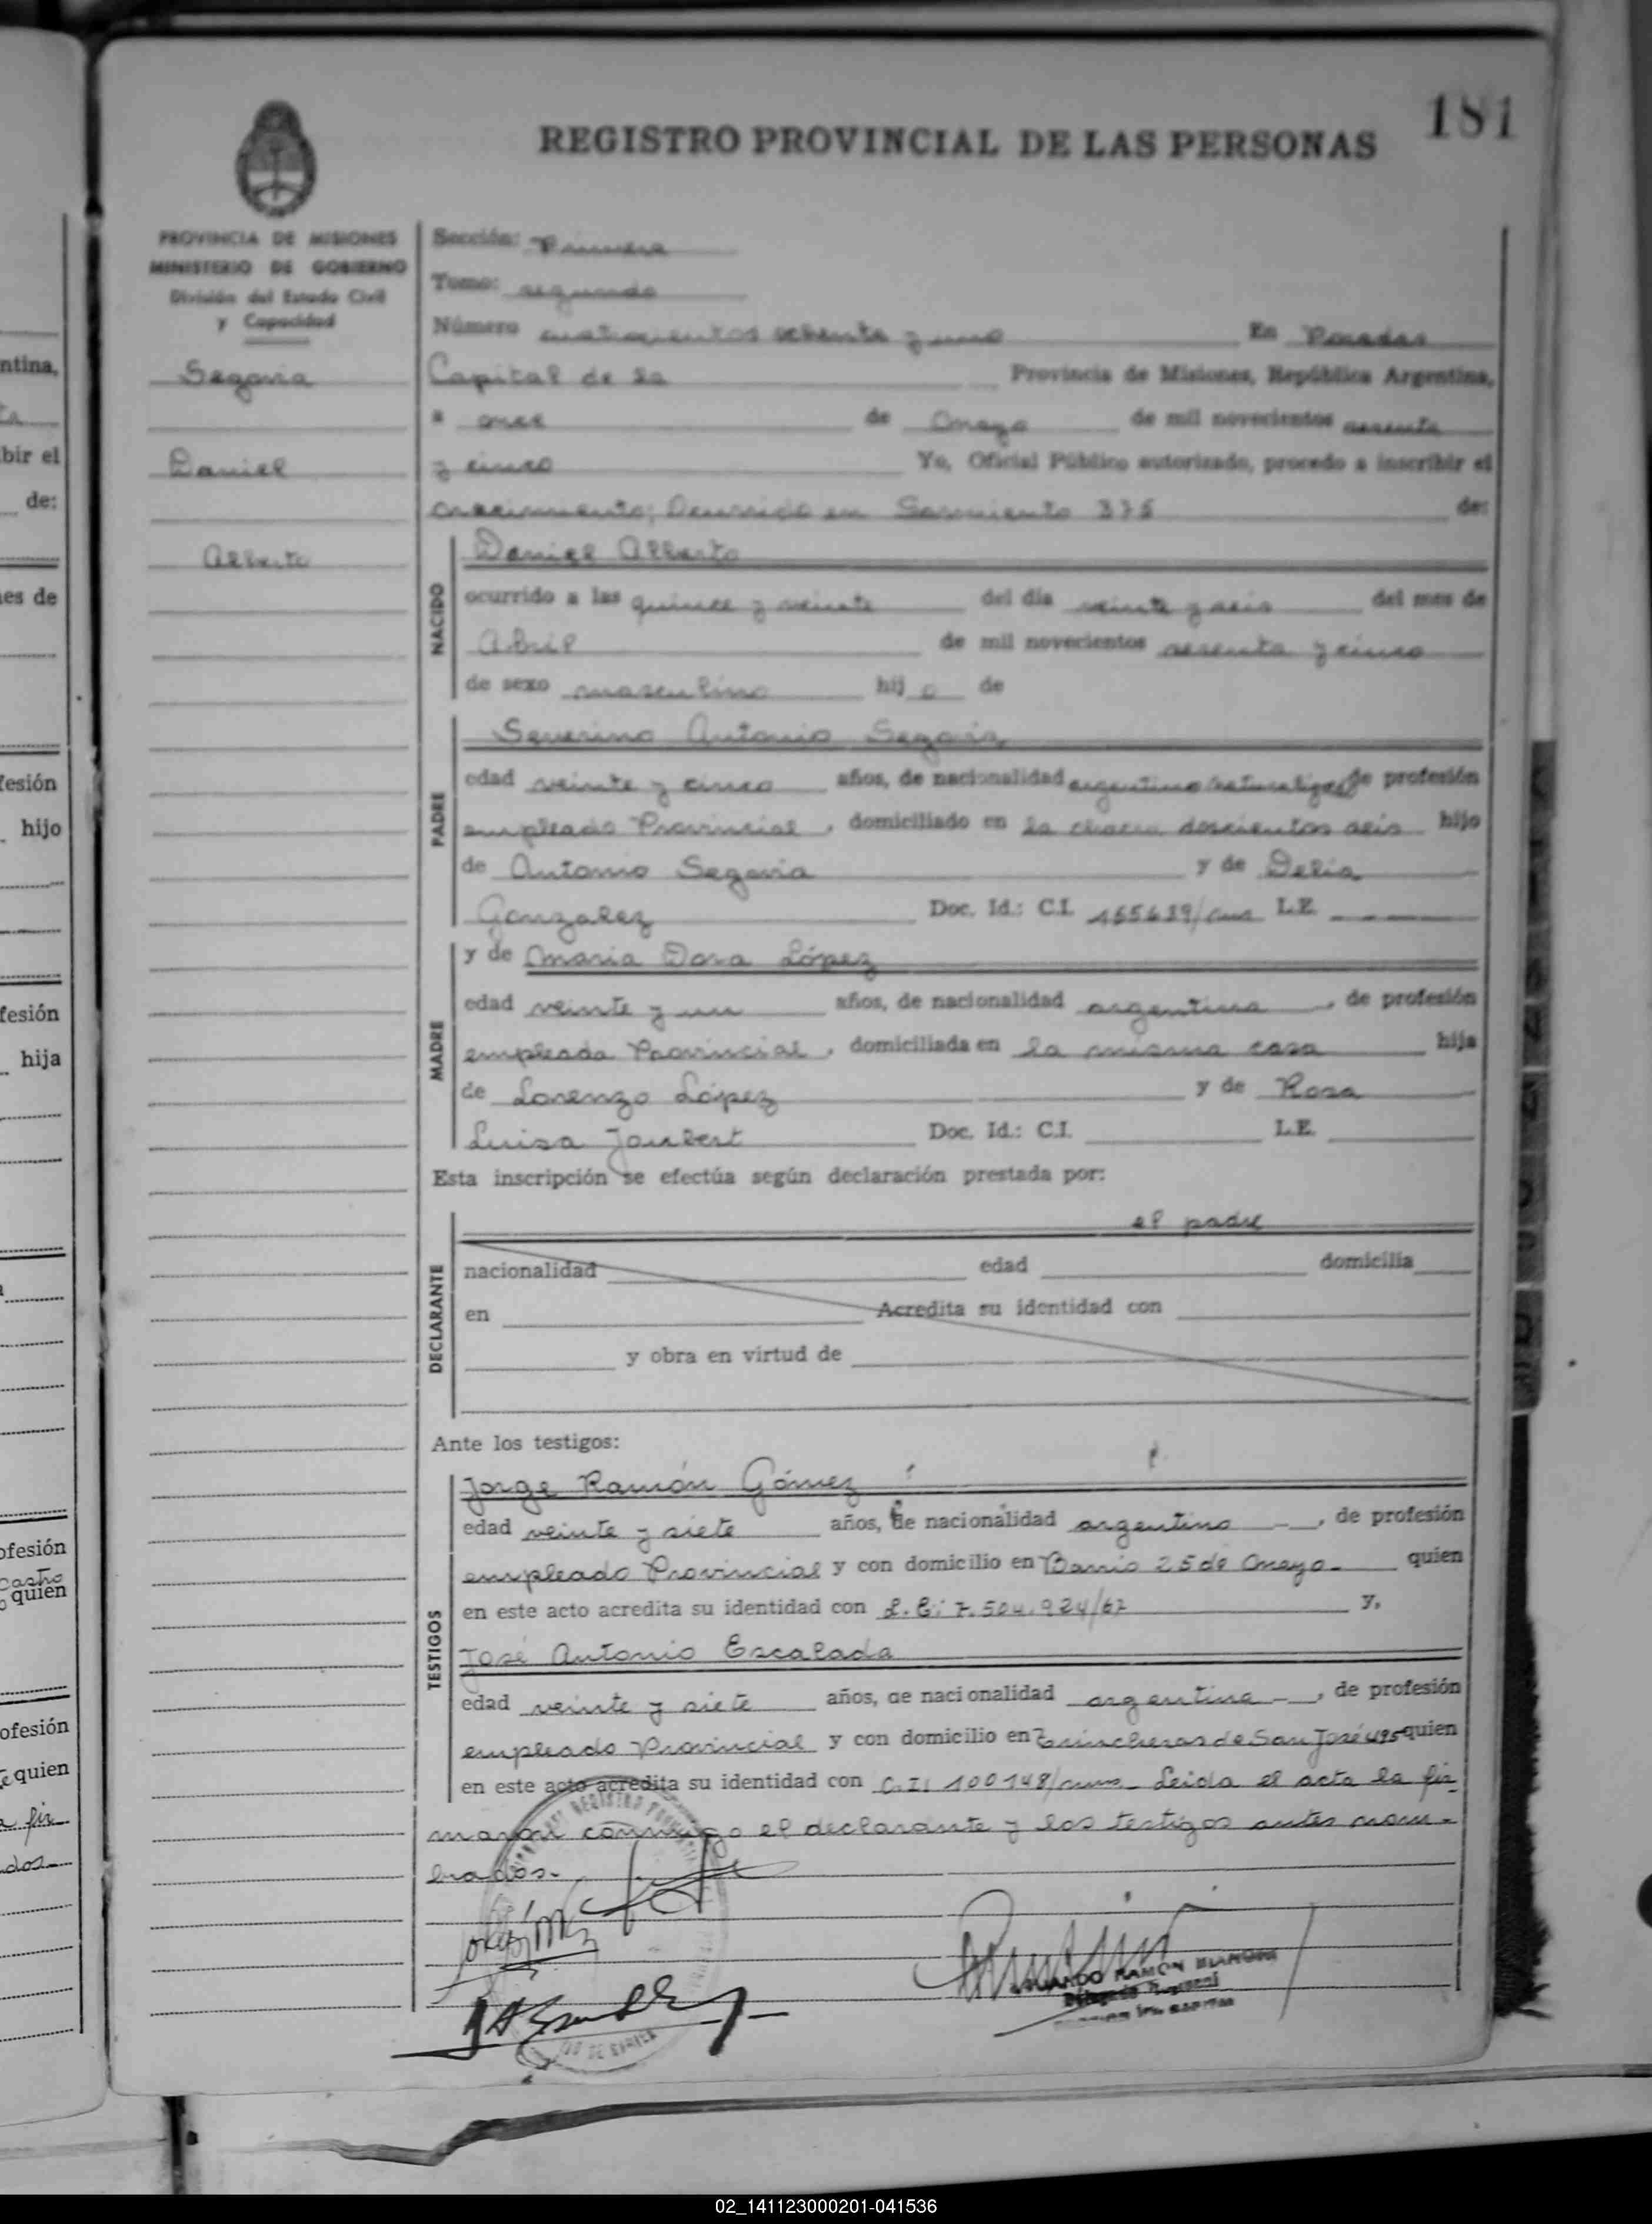 181
REGISTRO PROVINCIAL DE LAS PERSONAS
PROVINCIA DE MISIONES
MINISTERIO DE GOBIERNO
División del Estado Civil
y Capacidad
Segovia
Daniel
Alberto
Sección: Primera
Tomo: segundo
Número cuatrocientos ochenta y uno En Posadas
Capital de la Provincia de Misiones, República Argentina,
a once de Mayo de mil novecientos sesenta
y cinco Yo, Oficial Público autorizado, procedo a inscribir el
nacimiento; Ocurrido en Sarmiento 375 de:
NACIDO
Daniel Alberto
ocurrido a las quince y veinte del día veinte y seis del mes de
Abril de mil novecientos sesenta y cinco
de sexo masculino hijo de
PADRE
Severino Antonio Segovia
edad veinte y cinco años, de nacionalidad argentino naturalizado de profesión
empleado Provincial, domiciliado en la chacra doscientos seis hijo
de Antonio Segovia y de Delia
Gonzalez Doc. Id.: C.I. L.E.
MADRE
y de Maria Dora López
edad veinte y un años, de nacionalidad argentina, de profesión
empleada Provincial, domiciliada en la misma casa hija
de Lorenzo López y de Rosa
Luisa Joubert Doc. Id.: C.I. L.E.
Esta inscripción se efectúa según declaración prestada por:
DECLARANTE
el padre
nacionalidad edad domicilia
en Acredita su identidad con
y obra en virtud de
Ante los testigos:
TESTIGOS
Jorge Ramón Gómez
edad veinte y siete años, de nacionalidad argentino, de profesión
empleado Provincial y con domicilio en Barrio 25 de Mayo- quien
en este acto acredita su identidad con L.E: 7.504.924/62 y,
José Antonio Escalada
edad veinte y siete años, de nacionalidad argentina, de profesión
empleado Provincial y con domicilio en Trincheras de San José 495 quien
en este acto acredita su identidad con C.I: 100148/mnes- Leida el acta la fir-
maron conmigo el declarante y los testigos antes nom-
brados.-
RAMON
Delegado
02_141123000201-041536